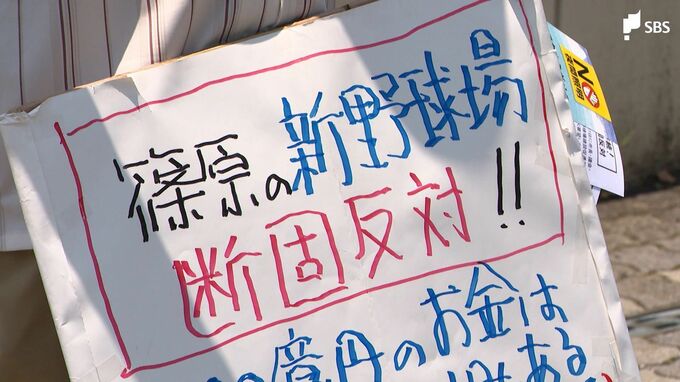 SBS
篠原の新野球場
断固反対!!
億円のお金は
ある